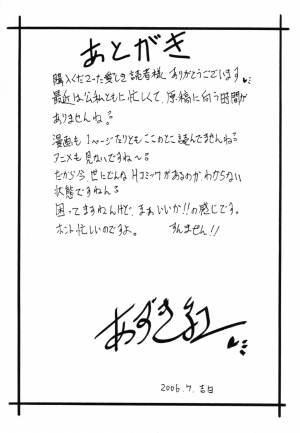 あとがき
購入くださった愛しき読者様、ありがとうございます♥
最近は公私ともに忙しくて、原稿に向う時間が
ありませんね。
漫画も1ページたりともここのとこ読んでませんね。
アニメも見ないですね〜。
だから今、世にどんなHコミックがあるのか、わからない
状態ですねん。
困ってますねんけど、まぁいいか!!の感じです。
ホント忙しいのですよ。 すんません!!
あずき紅
2006.7.吉日